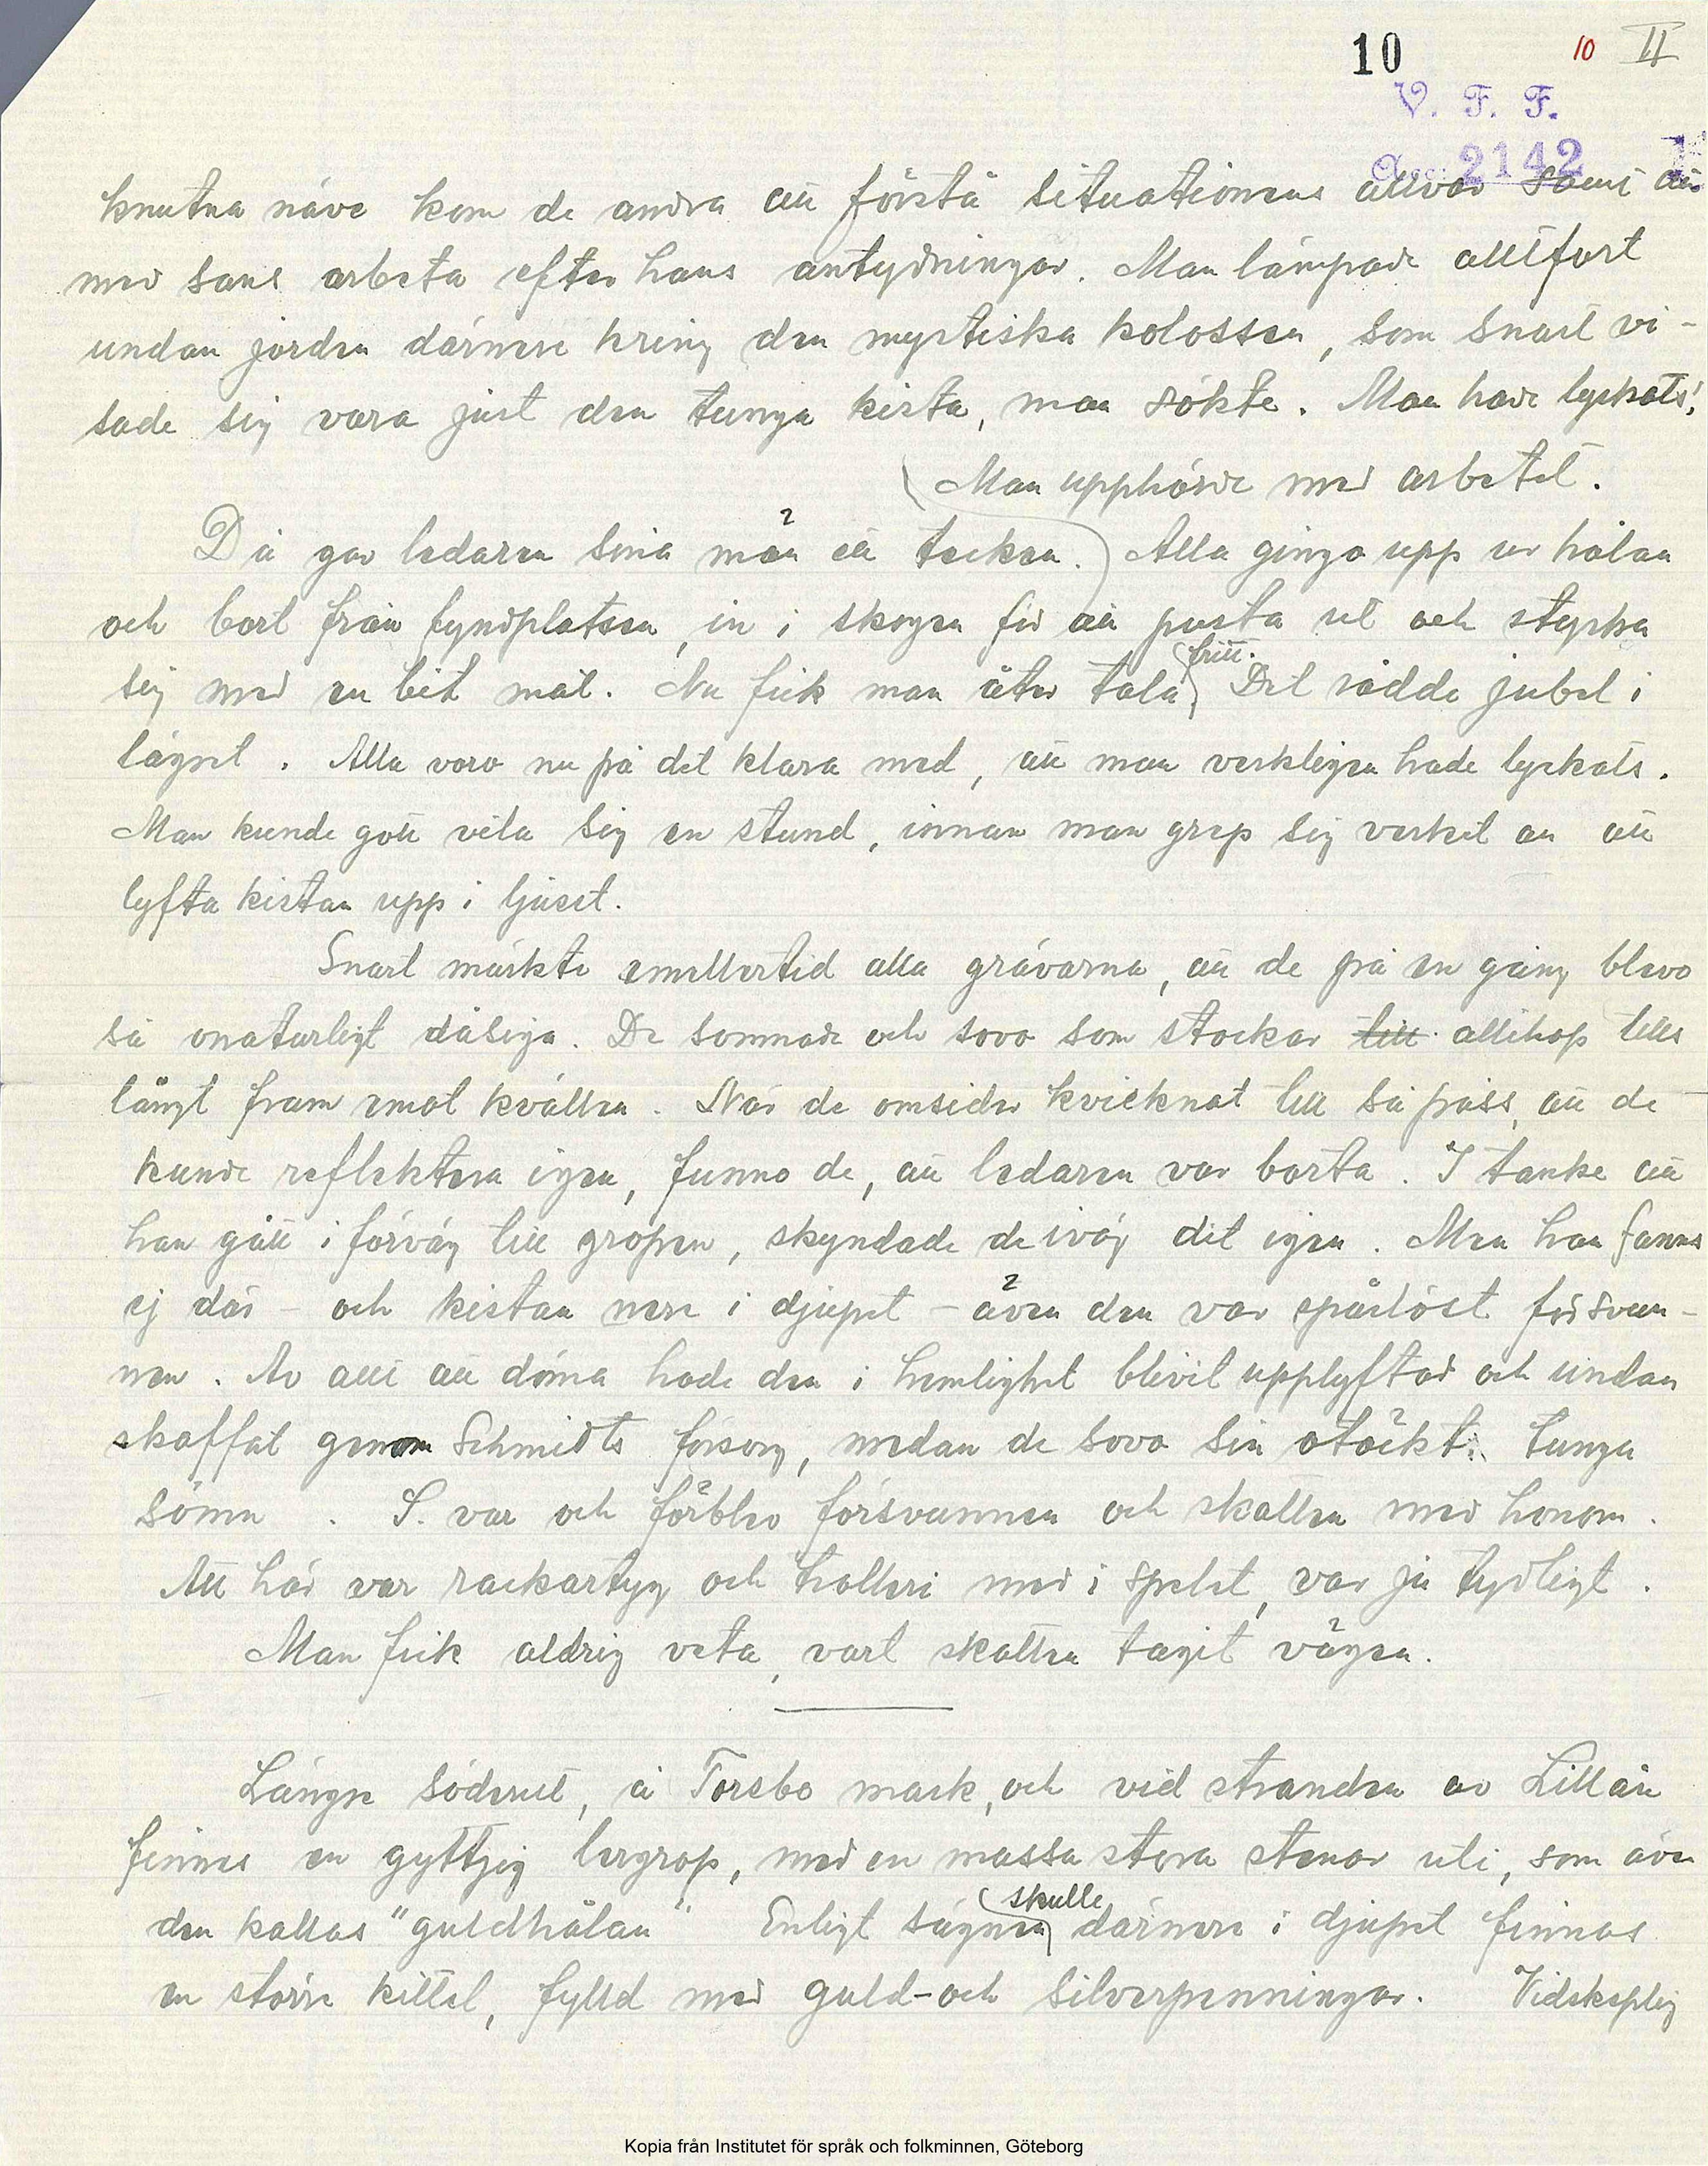 10 10 II
V. F. F.
Acc: 2142
knutna näve kom de andra att förstå situationens allvar samt att
med sans arbeta efter hans antydningar. Man lämpade alltfort
undan jorden därnere kring den mystiska kolossen, som snart vi-
sade sig vara just den tunga kista, man sökte. Man hade lyckats!
Man upphörde med arbetet.
Då gav ledaren sina män ett tecken. Alla gingo upp ur hålan
och bort från fyndplatsen, in i skogen för att pusta ut och styrka
sig med en bit mat. Nu fick man åter tala fritt. Det rådde jubel i
lägret. Alla voro nu på det klara med, att man verkligen hade lyckats.
Man kunde gott vila sig en stund, innan man grep sig verket an att
lyfta kistan upp i ljuset.
Snart märkte emellertid alla grävarna, att de på en gång blevo
så onaturligt dåsiga. De somnade och sovo som stockar till allihop tills
långt fram emot kvällen. När de omsider kvicknat till så pass, att de
kunde reflektera igen, funno de, att ledaren var borta. I tanke att
han gått i förväg till gropen, skyndade de iväg dit igen. Men han fanns
ej där - och kistan nere i djupet - även den var spårlöst försvun-
nen. Av allt att döma hade den i hemlighet blivit upplyftad och undan
skaffat genom Schmidts försorg, medan de sovo sin otäckt tunga
sömn. S. var och förblev försvunnen och skatten med honom.
Att här var rackartyg och trolleri med i spelet, var ju tydligt.
Man fick aldrig veta, vart skatten tagit vägen.
Längre söderut, å Torsbo mark, och vid stranden av Lillån
finnes en gyttjig lergrop, med en massa stora stenar uti, som även
den kallas "guldhålan" Enligt sägnen skulle därnere i djupet finnas
en större kittel, fylld med guld- och silverpenningar. Vidskeplig
Kopia från Institutet för språk och folkminnen, Göteborg